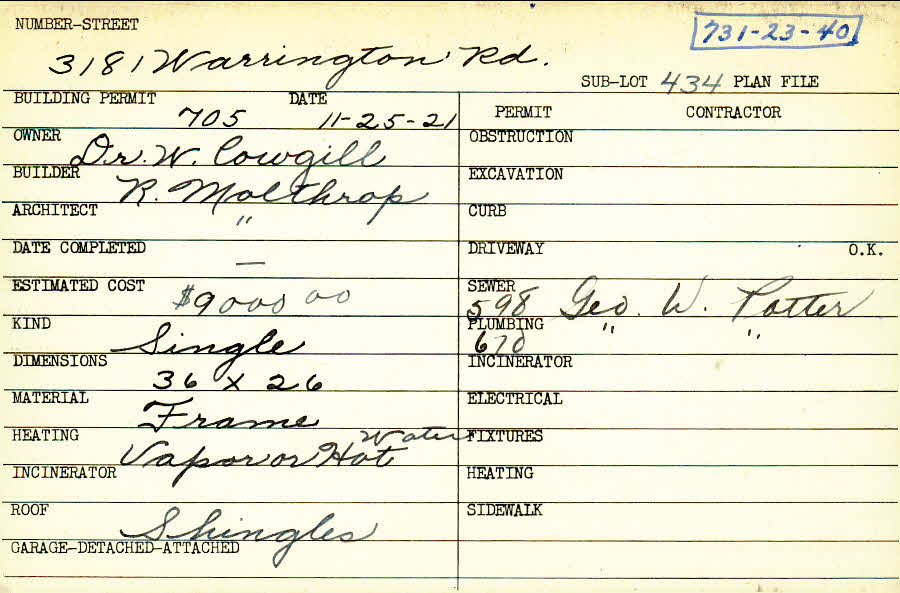 NUMBER-STREET
731-23-40
3181 Warrington Rd.
SUB-LOT 434 PLAN FILE
BUILDING PERMIT 705 DATE 11-25-21
PERMIT CONTRACTOR
OWNER Dr. W. Cowgill
OBSTRUCTION
BUILDER R. Molthrop
EXCAVATION
ARCHITECT "
CURB
DATE COMPLETED —
DRIVEWAY O.K.
ESTIMATED COST $9000 00
SEWER 598 Geo. W. Potter
KIND Single
PLUMBING 670 " "
DIMENSIONS 36 x 26
INCINERATOR
MATERIAL Frame
ELECTRICAL
HEATING Vapor or Hot Water
FIXTURES
INCINERATOR
HEATING
ROOF Shingles
SIDEWALK
GARAGE-DETACHED-ATTACHED